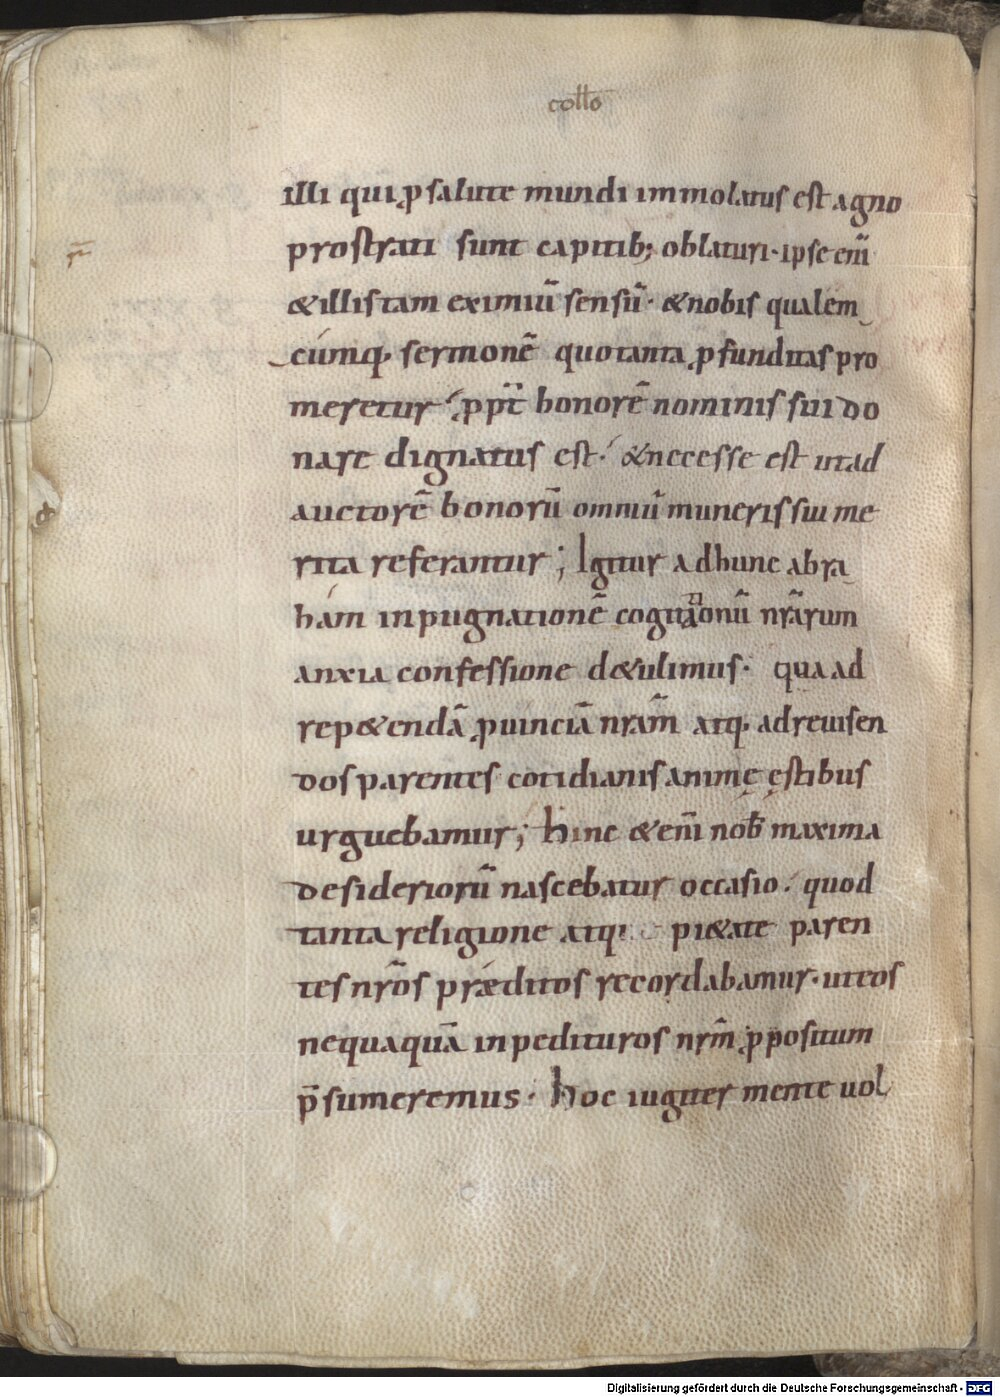 collō
illi qui ꝓ salute mundi immolatus est agno
prostrati sunt capitib; oblaturi · ipse eni̅
&illis tam eximiū sensū · & nobis qualem
cúmq; sermonē quo tanta ꝓfunditas pro
meretur ꝓpt̄ honorē nominis sui do
nare dignatus est · & necesse est ut ad
auctorē bonorū omniū muneris sui me
rita referantur ; Igitur ad hunc abra
hám inpugnationē cogitationū nr̄arum
anxia confessione d&ulimus · qua ad
rep&endā ꝓuinciā nrām atq; ad reuisen
dos parentes cotidianis animę ęstibus
urguebamur ; hinc & eni̅ nob̄ maxima
desideriorū nascebatur occasio · quod
tanta religione atq; pi&ate paren
tes nr̄os præditos recordabamur · ut eos
nequaquā inpedituros nrm̄ ꝓpositum
p̄sumeremus · hoc iugiter mente uol
Digitalisierung gefördert durch die Deutsche Forschungsgemeinschaft - DFG